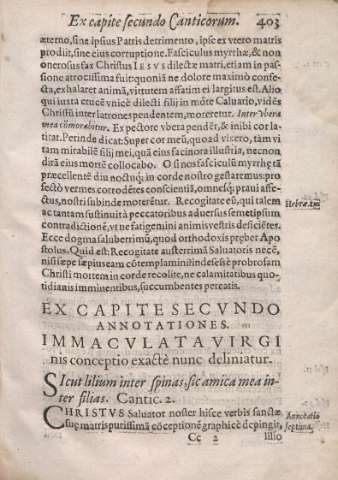 Ex capite secundo Canticorum. 403
æterno, sine ipsius Patris detrimento, ipse ex vtero matris
prodiit, sine eius corruptione. Fasciculus myrrhæ, & non
onerosus fax Christus IESVS dilectæ matri, etiam in pas-
sione atrocissima fuit: quoniã ne dolore maximò confe-
cta, exhalaret animã, virtutem affatim ei largitus est. Alio
qui iuxta crucẽ vnicè dilecti filij in mõte Caluario, vidẽs
Christũ inter latrones pendentem, moreretur. Inter Vbera
mea cõmorabitur. Ex pectore vbera pendẽt, & inibi cor la-
titat. Perinde dicat: Super cor meũ, quoad vixero, tàm vi-
tam mirabilẽ filij mei, quã eius facinora illustria, necnon
dirã eius mortẽ collocabo. O si nos fasciculũ myrrhę tã
præcellentẽ diu noctuq́; in corde nostro gestaremus: pro
fectò vermes corrodẽtes conscientiã, omnesq́; praui affe-
ctus, nostri subinde morerẽtur. Recogitate eũ, qui talem
ac tantam sustinuit à peccatoribus aduersus semetipsum
contradictionẽ, vt ne fatigemini animis vestris deficiẽtes.
Hebræ.xii
Ecce dogma saluberrimũ, quod orthodoxis prębet Apo-
stolus. Quid est: Recogitate austerrimã Saluatoris necẽ,
nisi sæpe iæpius eam cõtemplamini: indeses è probrosam
Christi mortem in corde recolite, ne calamitatibus quo-
tidianis imminentibus, succumbentes pereatis.
EX CAPITE SECVNDO
ANNOTATIONES.
IMMACVLATA VIRGI
nis conceptio exactè nunc deliniatur.
SIcut lilium inter spinas, sic amica mea in-
ter filias. Cantic. 2.
CHRISTVS Saluator noster hisce verbis sanctæ
Annotatio
suę matris purissimã cõceptionẽ graphicè depingit,
septima.
Cc 2 lilio